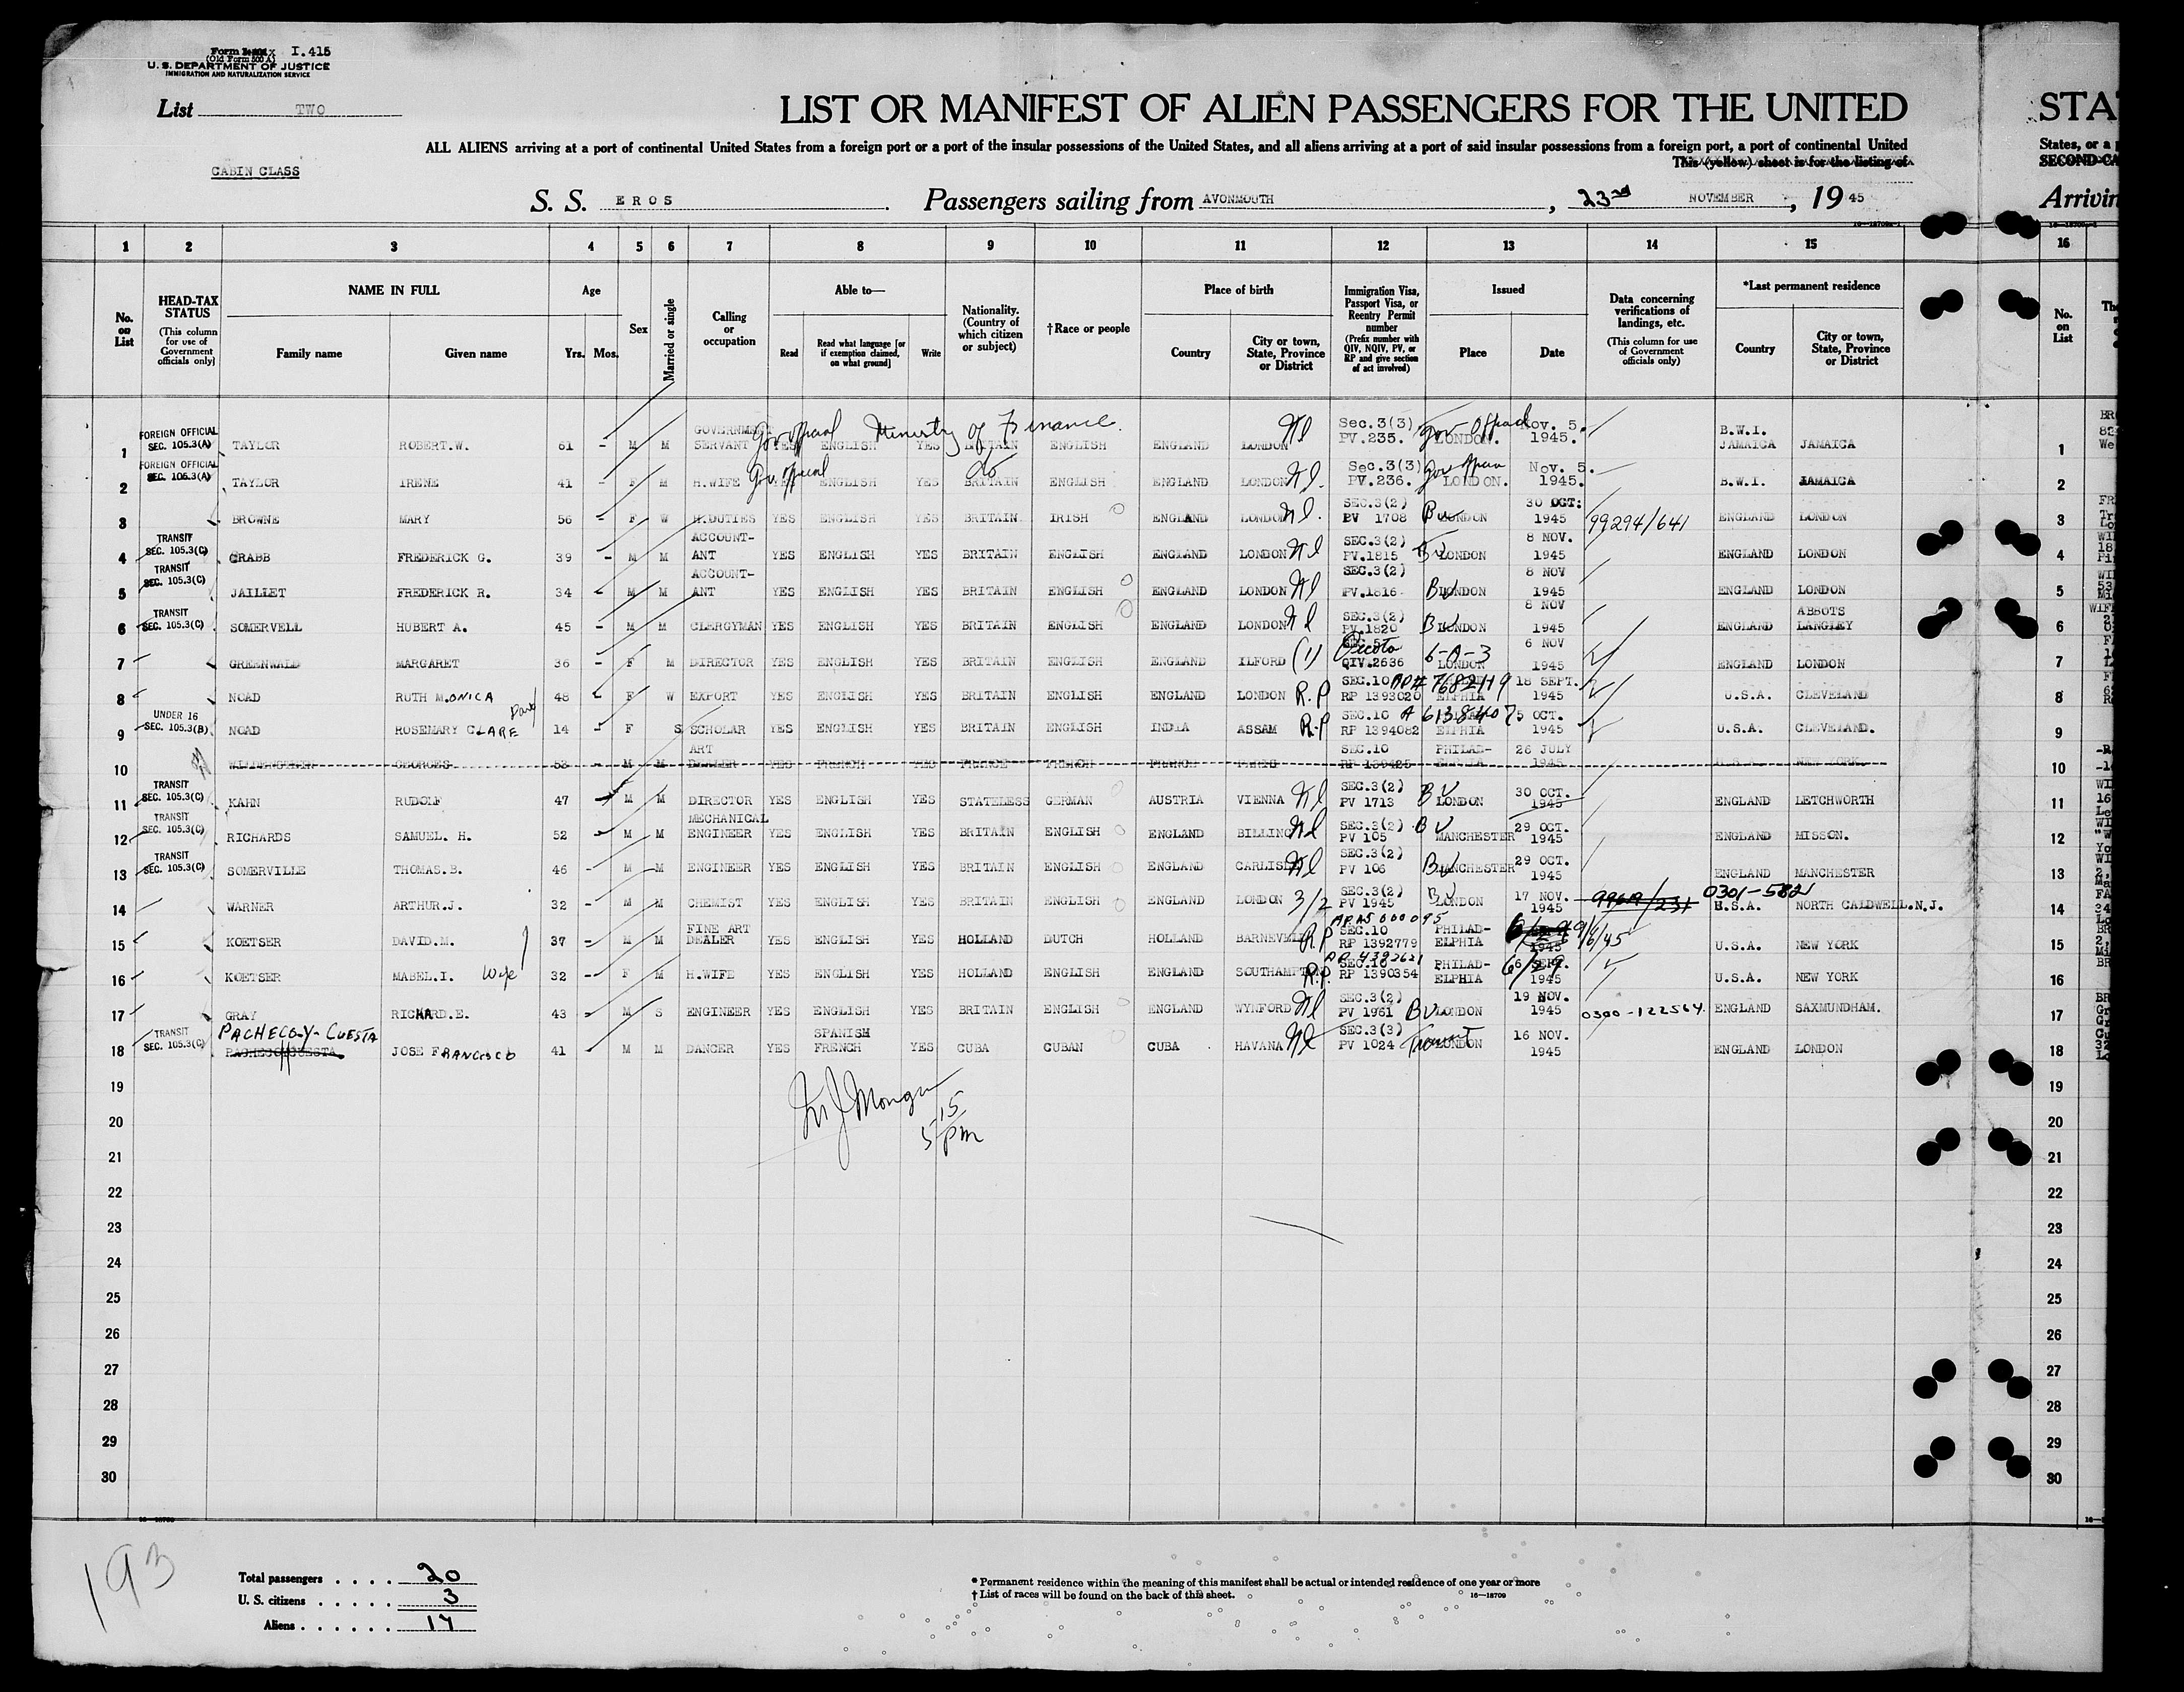 Form I. 415
(Old Form 500 A)
U. S. DEPARTMENT OF JUSTICE
IMMIGRATION AND NATURALIZATION SERVICE
List TWO
LIST OR MANIFEST OF ALIEN PASSENGERS FOR THE UNITED STA
ALL ALIENS arriving at a port of continental United States from a foreign port or a port of the insular possessions of the United States, and all aliens arriving at a port of said insular possessions from a foreign port, a port of continental United States, or a
CABIN CLASS
This (yellow) sheet is for the listing of SECOND-CA
S. S. EROS Passengers sailing from AVONMOUTH, 23rd NOVEMBER, 19 45 Arrivin
1 2 3 4 5 6 7 8 9 10 11 12 13 14 15 16
No. on List
HEAD-TAX STATUS (This column for use of Government officials only)
NAME IN FULL Family name Given name
Age Yrs. Mos.
Sex
Married or single
Calling or occupation
Able to— Read Read what language [or if exemption claimed, on what ground] Write
Nationality. (Country of which citizen or subject)
†Race or people
Place of birth Country City or town, State, Province or District
Immigration Visa, Passport Visa, or Reentry Permit number (Prefix number with QIV, NQIV, PV, or RP and give section of act involved)
Issued Place Date
Data concerning verifications of landings, etc. (This column for use of Government officials only)
*Last permanent residence Country City or town, State, Province or District
No. on List
1 FOREIGN OFFICIAL SEC. 105.3(A) TAYLOR ROBERT.W. 61 - M M GOVERNMENT SERVANT Gov official YES ENGLISH Ministry of Finance. YES BRITAIN ENGLISH ENGLAND LONDON Nl Sec.3(3) PV.235. Gov Official LONDON. Nov. 5. 1945. B.W.I. JAMAICA JAMAICA 1
2 FOREIGN OFFICIAL SEC. 105.3(A) TAYLOR IRENE 41 - F M H.WIFE Gov official YES ENGLISH YES do BRITAIN ENGLISH ENGLAND LONDON Nl. Sec.3(3) PV.236. LONDON. Nov. 5. 1945. B.W.I. JAMAICA 2
3 BROWNE MARY 56 - F W H.DUTIES YES ENGLISH YES BRITAIN IRISH ENGLAND LONDON Nl. SEC.3(2) PV 1708 Bv LONDON 30 OCT: 1945 99294/641 ENGLAND LONDON 3
4 TRANSIT SEC. 105.3(C) CRABB FREDERICK G. 39 - M M ACCOUNTANT YES ENGLISH YES BRITAIN ENGLISH ENGLAND LONDON Nl SEC.3(2) PV.1815 Bv LONDON 8 NOV. 1945 ENGLAND LONDON 4
5 TRANSIT SEC. 105.3(C) JAILLET FREDERICK R. 34 - M M ACCOUNTANT YES ENGLISH YES BRITAIN ENGLISH ENGLAND LONDON Nl SEC.3(2) PV.1816 Bv LONDON 8 NOV 1945 ENGLAND LONDON 5
6 TRANSIT SEC. 105.3(C) SOMERVELL HUBERT A. 45 - M M CLERGYMAN YES ENGLISH YES BRITAIN ENGLISH ENGLAND LONDON Nl SEC.3(2) PV.1820 Bv LONDON 8 NOV 1945 ENGLAND ABBOTS LANGLEY 6
7 GREENWALD MARGARET 36 - F M DIRECTOR YES ENGLISH YES BRITAIN ENGLISH ENGLAND ILFORD (1) Quota QIV.2636 6-A-3 LONDON 6 NOV 1945 ENGLAND LONDON 7
8 NOAD RUTH MONICA 48 F W EXPORT YES ENGLISH YES BRITAIN ENGLISH ENGLAND LONDON R.P SEC.10 RP 1393020 AR# 7682119 ELPHIA 18 SEPT. 1945 U.S.A. CLEVELAND 8
9 UNDER 16 SEC. 105.3(B) NOAD ROSEMARY CLARE 14 - F S SCHOLAR YES ENGLISH YES BRITAIN ENGLISH INDIA ASSAM R.P SEC.10 RP 1394082 A 6138407 ELPHIA 5 OCT. 1945 U.S.A. CLEVELAND. 9
10 GEORGES 53 - M M ART DEALER YES FRENCH YES FRANCE FRENCH FRANCE PARIS SEC.10 PHILADELPHIA 26 JULY 1945 U.S.A. NEW YORK. 10
11 TRANSIT SEC. 105.3(C) KAHN RUDOLF 47 M M DIRECTOR YES ENGLISH YES STATELESS GERMAN AUSTRIA VIENNA Nl SEC.3(2) PV 1713 BV LONDON 30 OCT. 1945 ENGLAND LETCHWORTH 11
12 TRANSIT SEC. 105.3(C) RICHARDS SAMUEL. H. 52 M M MECHANICAL ENGINEER YES ENGLISH YES BRITAIN ENGLISH ENGLAND BILLING Nl SEC.3(2) PV 105 BV MANCHESTER 29 OCT. 1945 ENGLAND MISSON. 12
13 TRANSIT SEC. 105.3(C) SOMERVILLE THOMAS.B. 46 - M M ENGINEER YES ENGLISH YES BRITAIN ENGLISH ENGLAND CARLISLE Nl SEC.3(2) PV 106 Bv MANCHESTER 29 OCT. 1945 ENGLAND MANCHESTER 13
14 WARNER ARTHUR.J. 32 - M M CHEMIST YES ENGLISH YES BRITAIN ENGLISH ENGLAND LONDON 3/2 SEC.3(2) PV 1945 BV LONDON 17 NOV. 1945 99619/231 0301-5821 U.S.A. NORTH CALDWELL.N.J. 14
15 KOETSER DAVID.M. 37 - M M FINE ART DEALER YES ENGLISH YES HOLLAND DUTCH HOLLAND BARNEVELD RP AR A5000095 SEC.10 RP 1392779 PHILADELPHIA 1945 9/6/45 U.S.A. NEW YORK 15
16 KOETSER MABEL.I. Wife 32 - F M H.WIFE YES ENGLISH YES HOLLAND ENGLISH ENGLAND SOUTHAMPTON R.P. AR 4392621 SEC.10 RP 1390354 PHILADELPHIA 6/29 1945 U.S.A. NEW YORK 16
17 GRAY RICHARD.E. 43 - M S ENGINEER YES ENGLISH YES BRITAIN ENGLISH ENGLAND WYNFORD Nl SEC.3(2) PV 1961 BV LONDON 19 NOV. 1945 0300-122564 ENGLAND SAXMUNDHAM. 17
18 TRANSIT SEC. 105.3(C) PACHECO-Y-CUESTA JOSE FRANCISCO 41 M M DANCER YES SPANISH FRENCH YES CUBA CUBAN CUBA HAVANA Nl SEC.3(3) PV 1024 Transit LONDON 16 NOV. 1945 ENGLAND LONDON 18
19 19
20 20
21 21
22 22
23 23
24 24
25 25
26 26
27 27
28 28
29 29
30 30
5 15 pm
193
Total passengers . . . . 20
U. S. citizens . . . . . 3
Aliens . . . . . . 17
* Permanent residence within the meaning of this manifest shall be actual or intended residence of one year or more
† List of races will be found on the back of this sheet. 16—18709